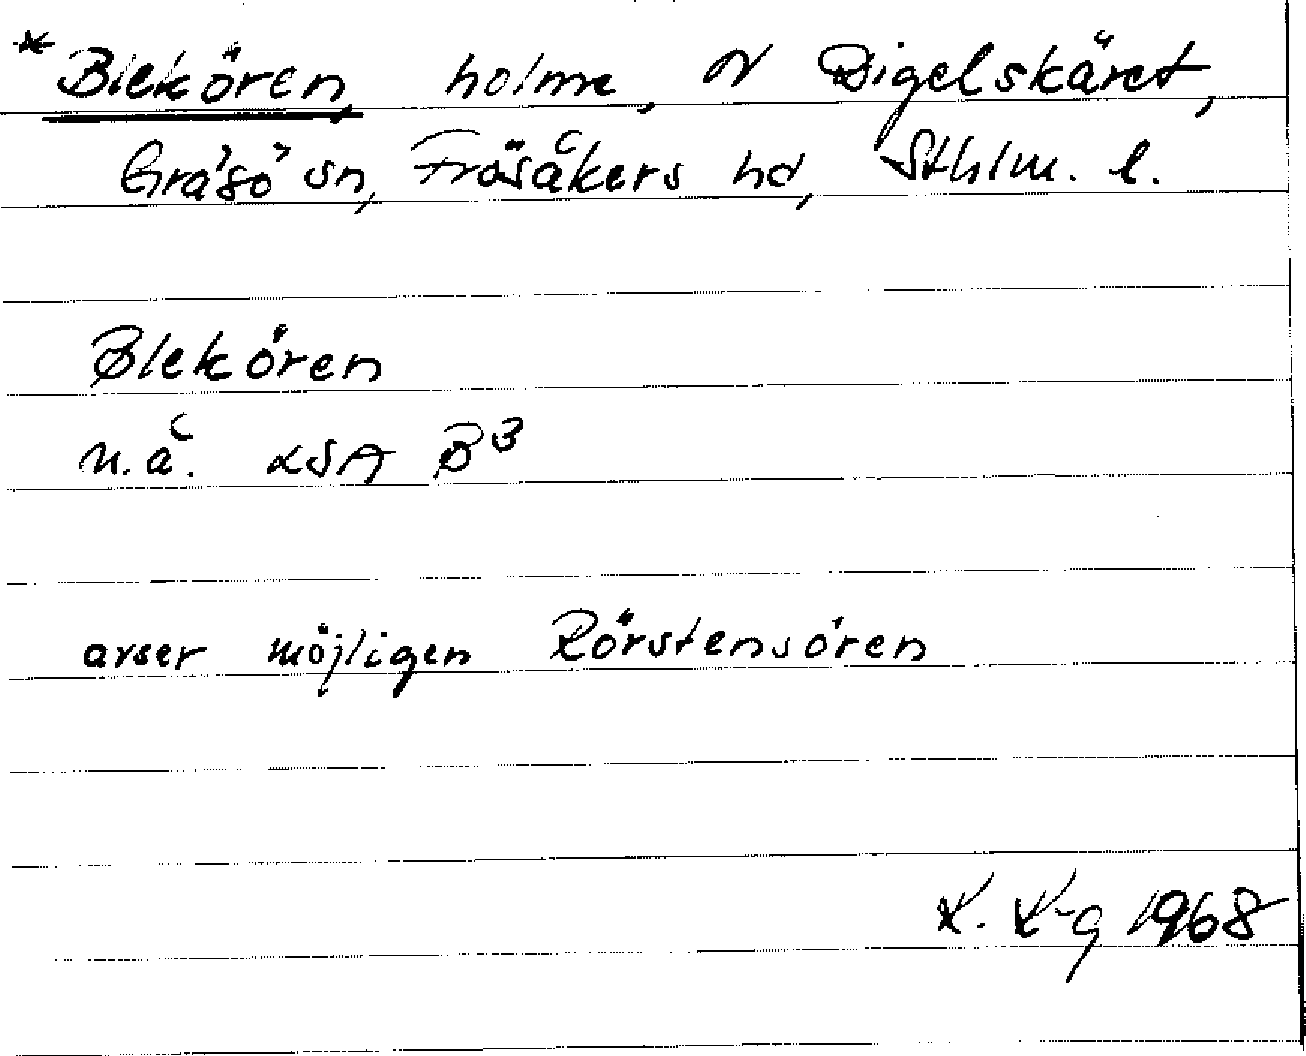 *Blekören, holme, N Bigelskäret,
Gräsö sn, Frösåkers hd, Sthlm. l.
Blekören
n.å. LSA B3
avser möjligen Rörstensören
K. K-g 1968